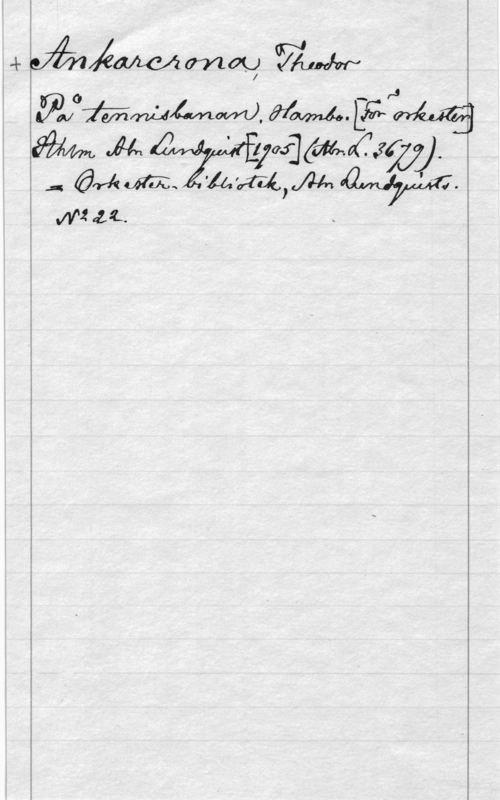 + Ankarcrona, Theodor
På tennisbanan, Hambo. [För orkester]
Sthlm Abr. Lundquist [1905] (Abr. L. 3679).
= Orkester-bibliotek, Abr. Lundquists.
Nº 22.